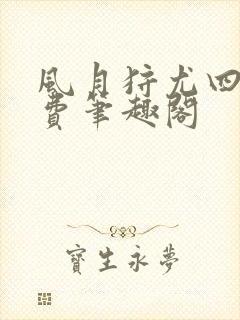 風月狩尤四
費筆趣閣
寶生永夢